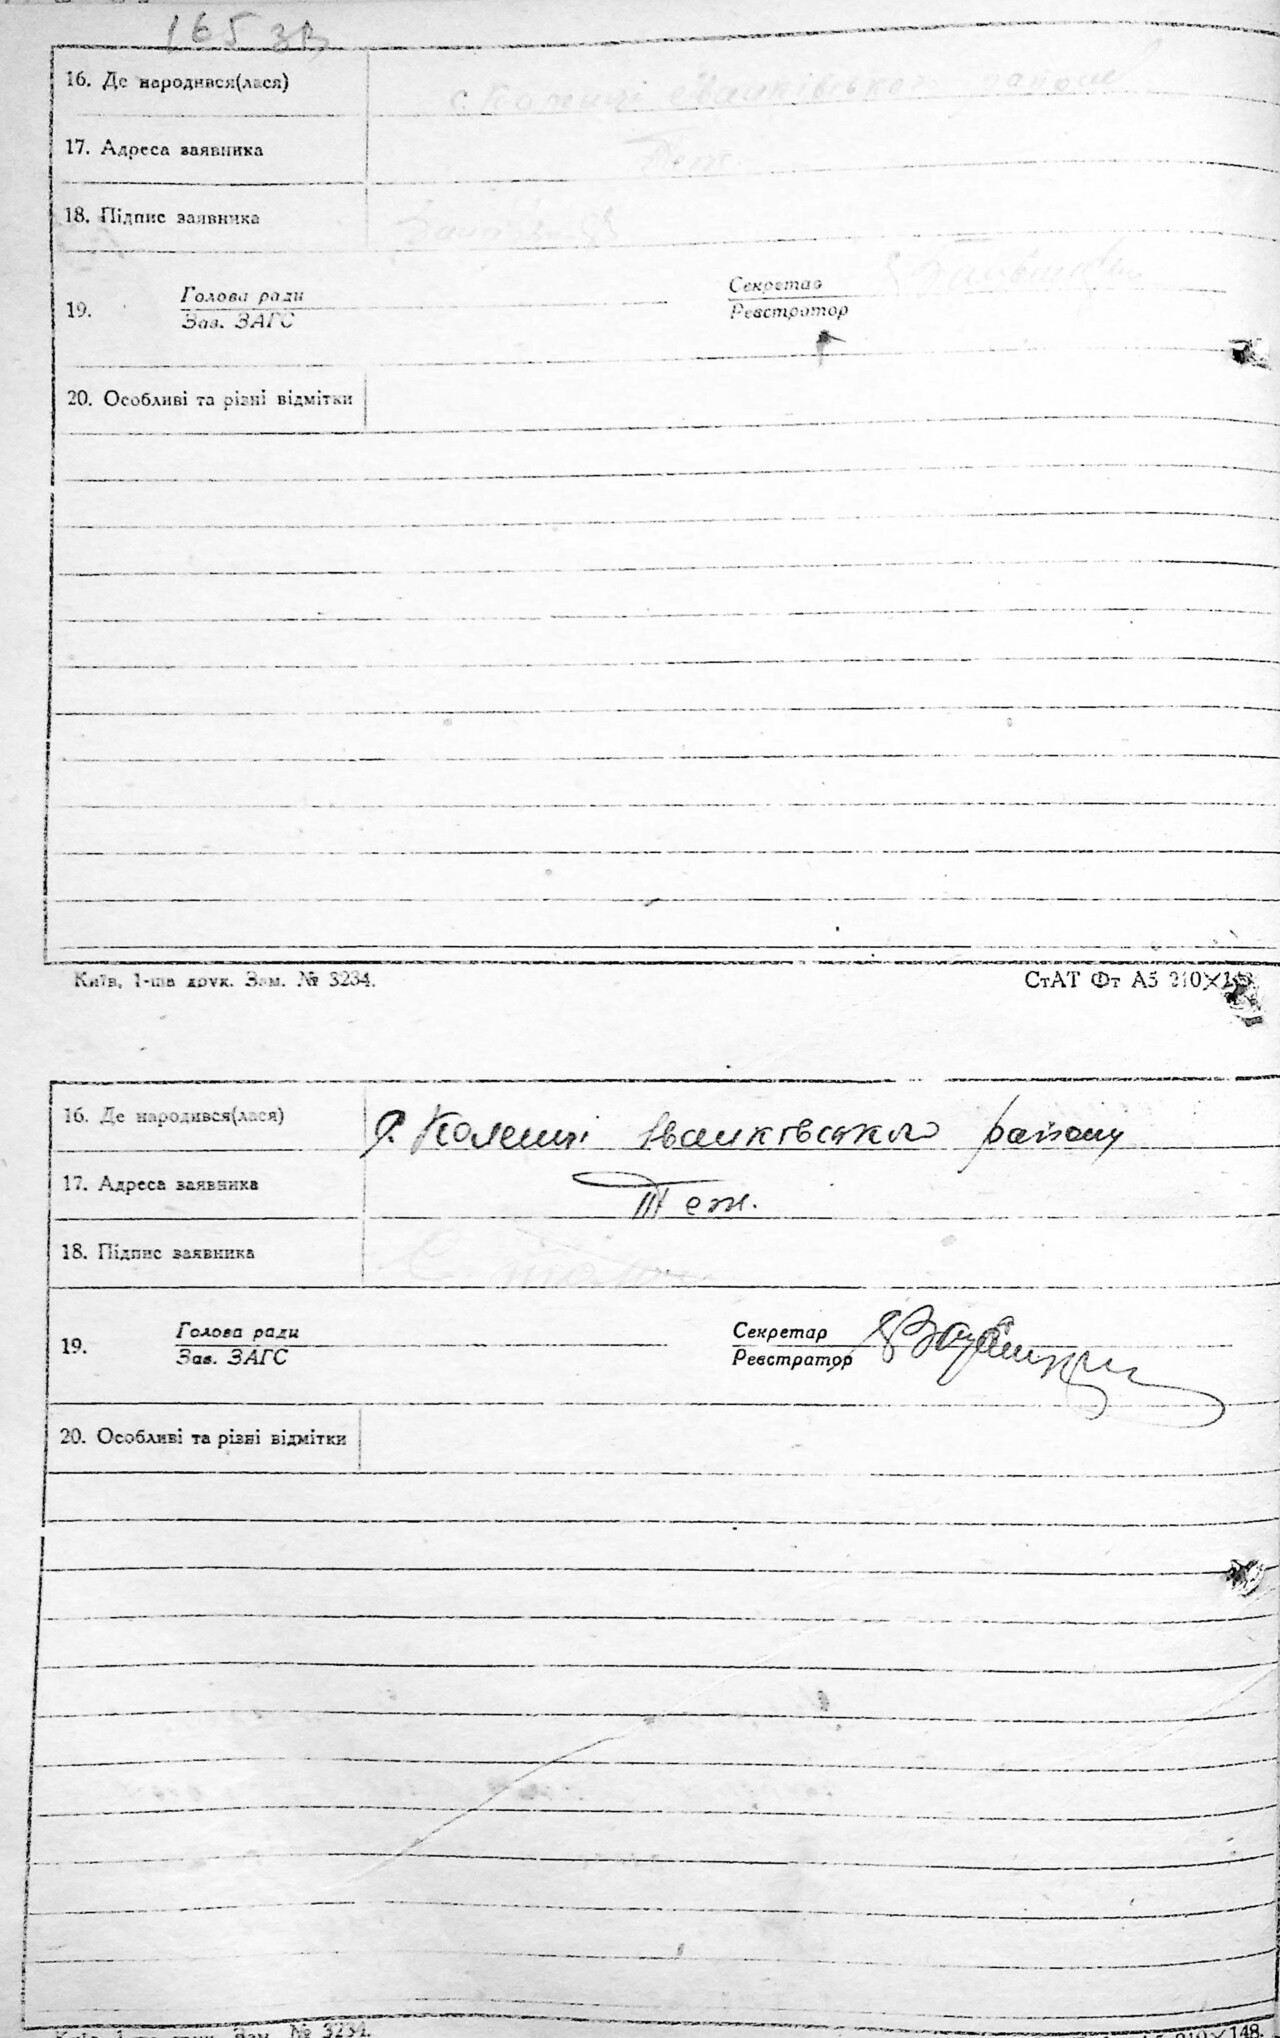 165 зв
16. Де народився(лася) с. Коленці Іванківського району
17. Адреса заявника Теж.
18. Підпис заявника
19. Голова ради Секретар
Зав. ЗАГС Реєстратор
20. Особливі та різні відмітки
Київ, 1-ша друк. Зам. № 3234. СтАТ Фт А5 210×148
16. Де народився(лася) с. Коленці Іванківського району
17. Адреса заявника Теж.
18. Підпис заявника
19. Голова ради Секретар
Зав. ЗАГС Реєстратор
20. Особливі та різні відмітки
Київ, 1-ша друк. Зам. № 3234. 210×148.